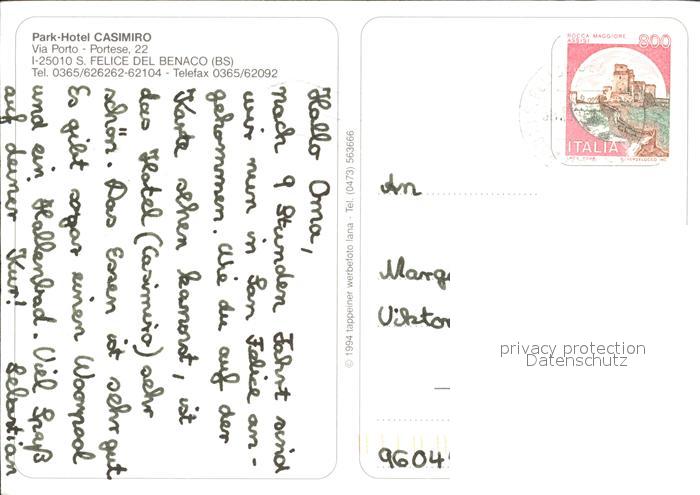 Park-Hotel CASIMIRO
Via Porto - Portese, 22
I-25010 S. FELICE DEL BENACO (BS)
Tel. 0365/626262-62104 - Telefax 0365/62092
Hallo Oma,
nach 9 Stunden Fahrt sind
wir nun in San Felice an-
gekommen. Wie du auf der
Karte sehen kannst, ist
das Hotel (Casimiro) sehr
schön. Das Essen ist sehr gut
Es gibt sogar einen Woorpool
und ein Hallenbad. Viel Spaß
auf deiner Kur! Sebastian
© 1994 tappeiner werbefoto lana - Tel. (0473) 563666
ROCCA MAGGIORE
ASSISI
800
ITALIA
An
Marg
Viktor
privacy protection
Datenschutz
9604